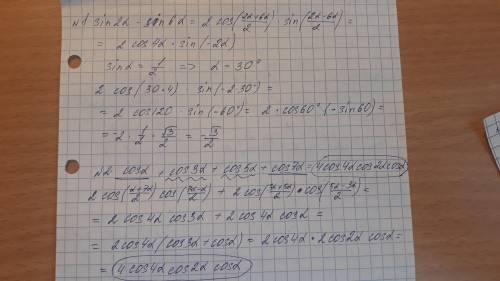 №1 sin2α - sin6α = 2 cos(2α+6α/2) · sin(2α-6α/2) =
= 2 cos4α · sin(-2α)
sinα = 1/2 => α = 30°
2 cos(30·4) · sin(-2·30°) =
= 2 cos120 · sin(-60°) = 2 · cos60° (-sin60) =
= -2 · 1/2 · √3/2 = √3/2
№2 cosα + cos3α + cos5α + cos7α = 4cos4α cos2α cosα
2 cos(α+7α/2) cos(7α-α/2) + 2 cos(3α+5α/2) · cos(5α-3α/2) =
= 2 cos4α cos3α + 2 cos4α cosα =
= 2cos4α (cos3α + cosα) = 2cos4α · 2cos2α cosα =
= 4cos4α cos2α cosα